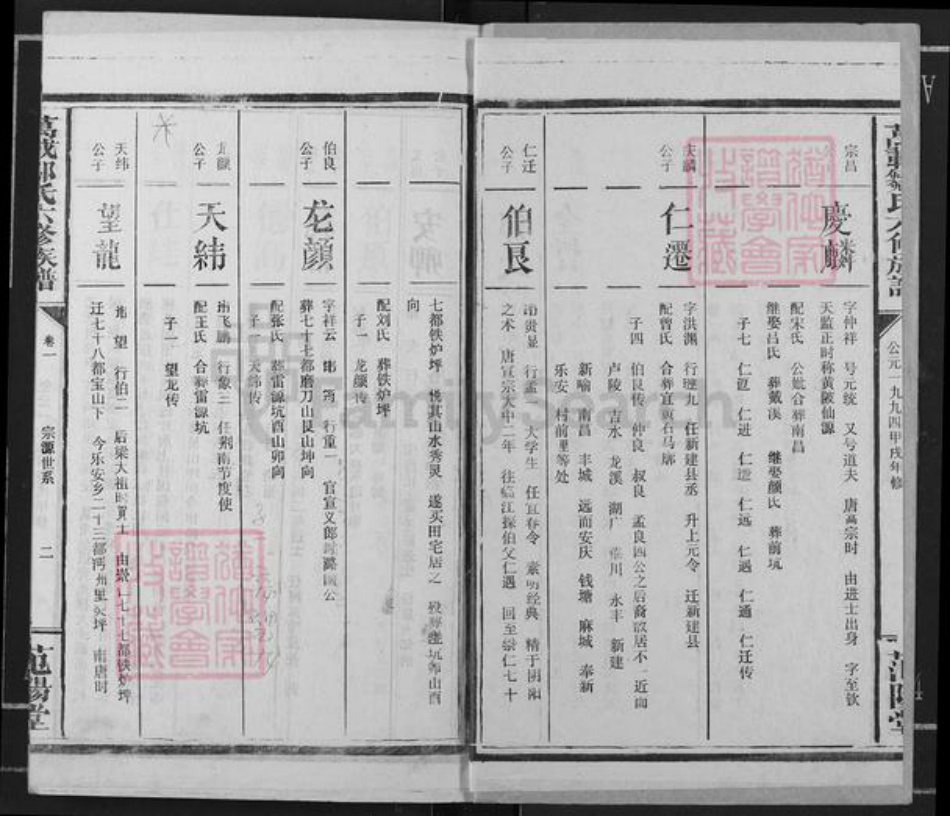 公元一九九四甲戌年修
宗昌
慶麟
字仲祥 号元统 又号道夫 唐高宗时 由进士出身 字至钦
天监正时称黄陂仙源
配宋氏 公妣合葬南昌
继娶吕氏 葬戴溪 继娶颜氏 葬前坑
子七 仁 仁进 仁 仁远 仁遇 仁通 仁迁传
庆麟
公子
仁遷
字洪渊 行 九 任新建县丞 升上元令 迁新建县
配曾氏 合葬宜黄石马 
子四 伯良传 仲良 叔良 孟良四公之后裔散居不一近而
卢陵 吉水 龙溪 湖广 临川 永丰 新建
新喻 南昌 丰城 远而安庆 钱塘 麻城 奉新
乐安 村前里等处
仁迁
公子
伯良
讳贵显 行孟 大学生 任宜春令 素明经典 精于阴阳
之术 唐宣宗大中二年 往临江探伯父仁遇 回至崇仁七十
七都铁炉坪 悦其山水秀灵 遂买田宅居之 殁葬 坑 山酉
向
配刘氏 葬铁炉坪
子一 龙颜传
伯良
公子
龙颜
字祥云 讳 行重一 官宣义郎 国公
葬七十七都磨刀山艮山坤向
配张氏 葬雷源坑酉山卯向
子一 天纬传
龙颜
公子
天緯
讳飞鹏 行象三 任荆南节度使
配王氏 合葬雷源坑
子一 望龙传
天纬
公子
望龍
讳望 行伯二 后梁大祖时 士 由崇仁七十七都铁炉坪
迁七十八都宝山下 今乐安乡二十三都 州里 坪 南唐时
萬載鄒氏六修族譜
卷一
宗源世系
二
范陽堂